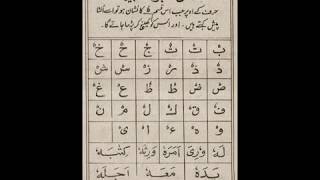 حرف کے اوپر جب اس قسم ٗ کا نشان ہو تو اسے الٹا
پیش کہتے ہیں۔ اور اس کو کھینچ کر پڑھا جائے گا
بٗ تٗ ثٗ جٗ حٗ خٗ
دٗ ذٗ رٗ زٗ سٗ شٗ
صٗ ضٗ طٗ ظٗ عٗ غٗ
فٗ قٗ كٗ لٗ مٗ نٗ
وٗ هٗ ءٗ اٗ یٗ
لَهٗ وٗرِیَ اَمَرَهٗ وَرِثَهٗ
يَدَهٗ مَعَهٗ اَجَلَهٗ